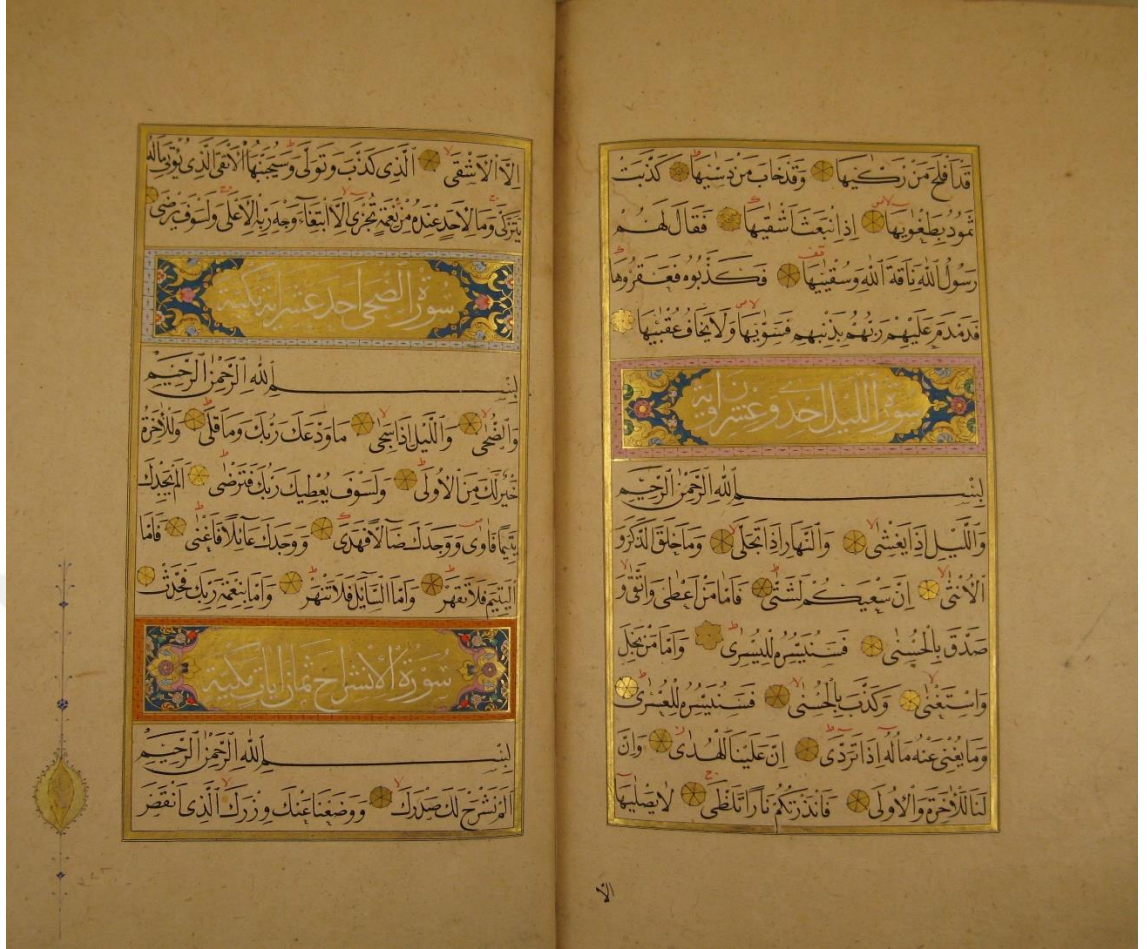 قَدْ اَفْلَحَ مَنْ زَكّٰيهَا وَقَدْ خَابَ مَنْ دَسّٰيهَا كَذَّبَتْ
ثَمُودُ بِطَغْوٰيهَا اِذِ انْبَعَثَ اَشْقٰيهَا فَقَالَ لَهُمْ
رَسُولُ اللّٰهِ نَاقَةَ اللّٰهِ وَسُقْيٰيهَا فَكَذَّبُوهُ فَعَقَرُوهَا
فَدَمْدَمَ عَلَيْهِمْ رَبُّهُمْ بِذَنْبِهِمْ فَسَوّٰيهَا وَلَا يَخَافُ عُقْبٰيهَا
سورة الليل احدى وعشرون اية
بِسْمِ اللّٰهِ الرَّحْمٰنِ الرَّحِيمِ
وَالَّيْلِ اِذَا يَغْشٰى وَالنَّهَارِ اِذَا تَجَلّٰى وَمَا خَلَقَ الذَّكَرَ وَ
الْاُنْثٰى اِنَّ سَعْيَكُمْ لَشَتّٰى فَاَمَّا مَنْ اَعْطٰى وَاتَّقٰى وَ
صَدَّقَ بِالْحُسْنٰى فَسَنُيَسِّرُهُ لِلْيُسْرٰى وَاَمَّا مَنْ بَخِلَ
وَاسْتَغْنٰى وَكَذَّبَ بِالْحُسْنٰى فَسَنُيَسِّرُهُ لِلْعُسْرٰى
وَمَا يُغْنِى عَنْهُ مَالُهُ اِذَا تَرَدّٰى اِنَّ عَلَيْنَا لَلْهُدٰى وَاِنَّ
لَنَا لَلْاٰخِرَةَ وَالْاُولٰى فَاَنْذَرْتُكُمْ نَارًا تَلَظّٰى لَا يَصْلٰيهَا
الا
اِلَّا الْاَشْقَى الَّذِى كَذَّبَ وَتَوَلّٰى وَسَيُجَنَّبُهَا الْاَتْقَى الَّذِى يُؤْتِى مَالَهُ
يَتَزَكّٰى وَمَا لِاَحَدٍ عِنْدَهُ مِنْ نِعْمَةٍ تُجْزٰى اِلَّا ابْتِغَاءَ وَجْهِ رَبِّهِ الْاَعْلٰى وَلَسَوْفَ يَرْضٰى
سورة الضحى احد عشر اية مكية
بِسْمِ اللّٰهِ الرَّحْمٰنِ الرَّحِيمِ
وَالضُّحٰى وَالَّيْلِ اِذَا سَجٰى مَا وَدَّعَكَ رَبُّكَ وَمَا قَلٰى وَلَلْاٰخِرَةُ
خَيْرٌ لَكَ مِنَ الْاُولٰى وَلَسَوْفَ يُعْطِيكَ رَبُّكَ فَتَرْضٰى اَلَمْ يَجِدْكَ
يَتِيمًا فَاٰوٰى وَوَجَدَكَ ضَالًّا فَهَدٰى وَوَجَدَكَ عَائِلًا فَاَغْنٰى فَاَمَّا
الْيَتِيمَ فَلَا تَقْهَرْ وَاَمَّا السَّائِلَ فَلَا تَنْهَرْ وَاَمَّا بِنِعْمَةِ رَبِّكَ فَحَدِّثْ
سورة الانشراح ثمان ايات مكية
بِسْمِ اللّٰهِ الرَّحْمٰنِ الرَّحِيمِ
اَلَمْ نَشْرَحْ لَكَ صَدْرَكَ وَوَضَعْنَا عَنْكَ وِزْرَكَ الَّذِى اَنْقَضَ